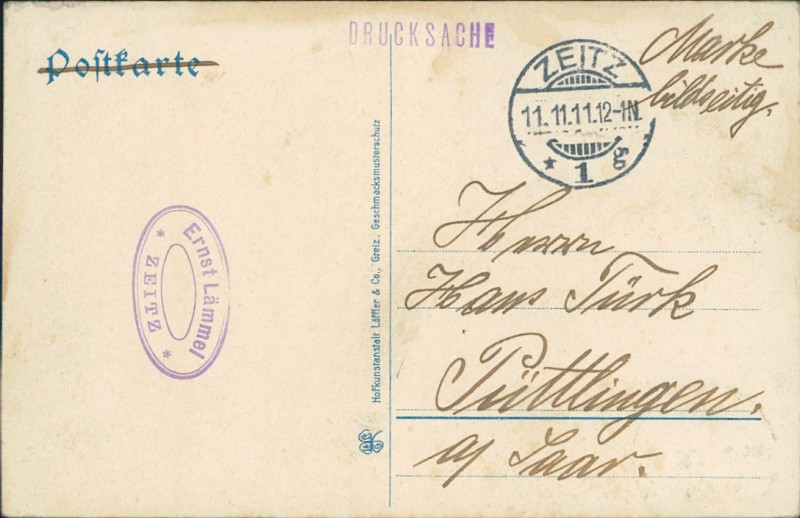 Postkarte
DRUCKSACHE
ZEITZ
11.11.11.12-1N.
* 1 g
Marke
bildseitig.
Ernst Lämmel
* ZEITZ *
Hofkunstanstalt Löffler & Co., Greiz. Geschmacksmusterschutz
Herrn
Hans Türk
Püttlingen.
a/ Saar.